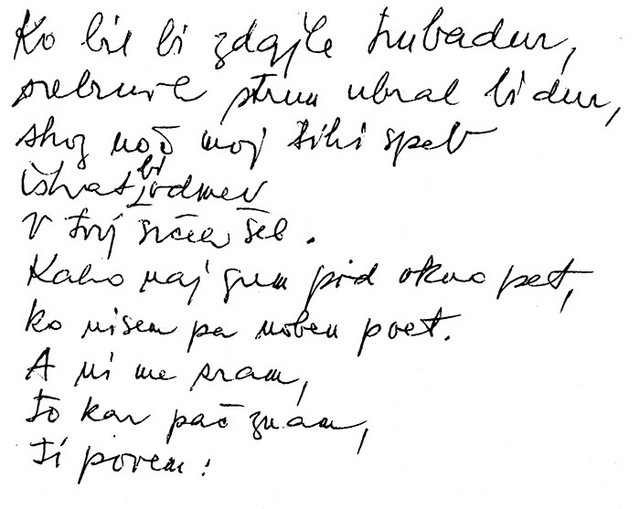 Ko bil bi zdajle trubadur,
srebrnih strun ubral bi dur,
skoz noč moj tihi spev
iskat bi odmev
v tvoj srček šel.
Kako naj grem pod okno pet,
ko nisem pa noben poet.
A ni me sram,
to kar pač znam,
ti povem: